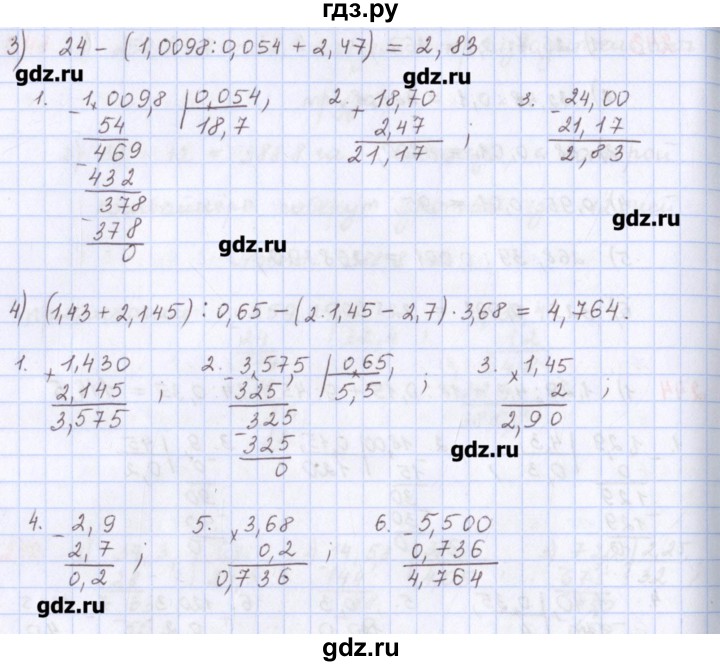 гдз.ру
3) 24 - (1,0098:0,054 + 2,47) = 2,83
gdz.ru gdz.ru
1. 1,009,8 | 0,054, 2. 18,70 3. 24,00
- 54 18,7 + 2,47 ; - 21,17
469 21,17 2,83
- 432
378 gdz.ru
- 378
0 gdz.ru
4) (1,43 + 2,145) : 0,65 - (2·1,45 - 2,7)·3,68 = 4,764.
1. 1,430 2. 3,57,5 | 0,65, 3. 1,45
+ 2,145 ; - 325 5,5 ; × 2 ;
3,575 325 2,90
- 325 gdz.ru
0
4. 2,9 5. 3,68 6. 5,500
- 2,7 ; × 0,2 ; - 0,736
0,2 0,736 4,764
gdz.ru gdz.ru
gdz.ru